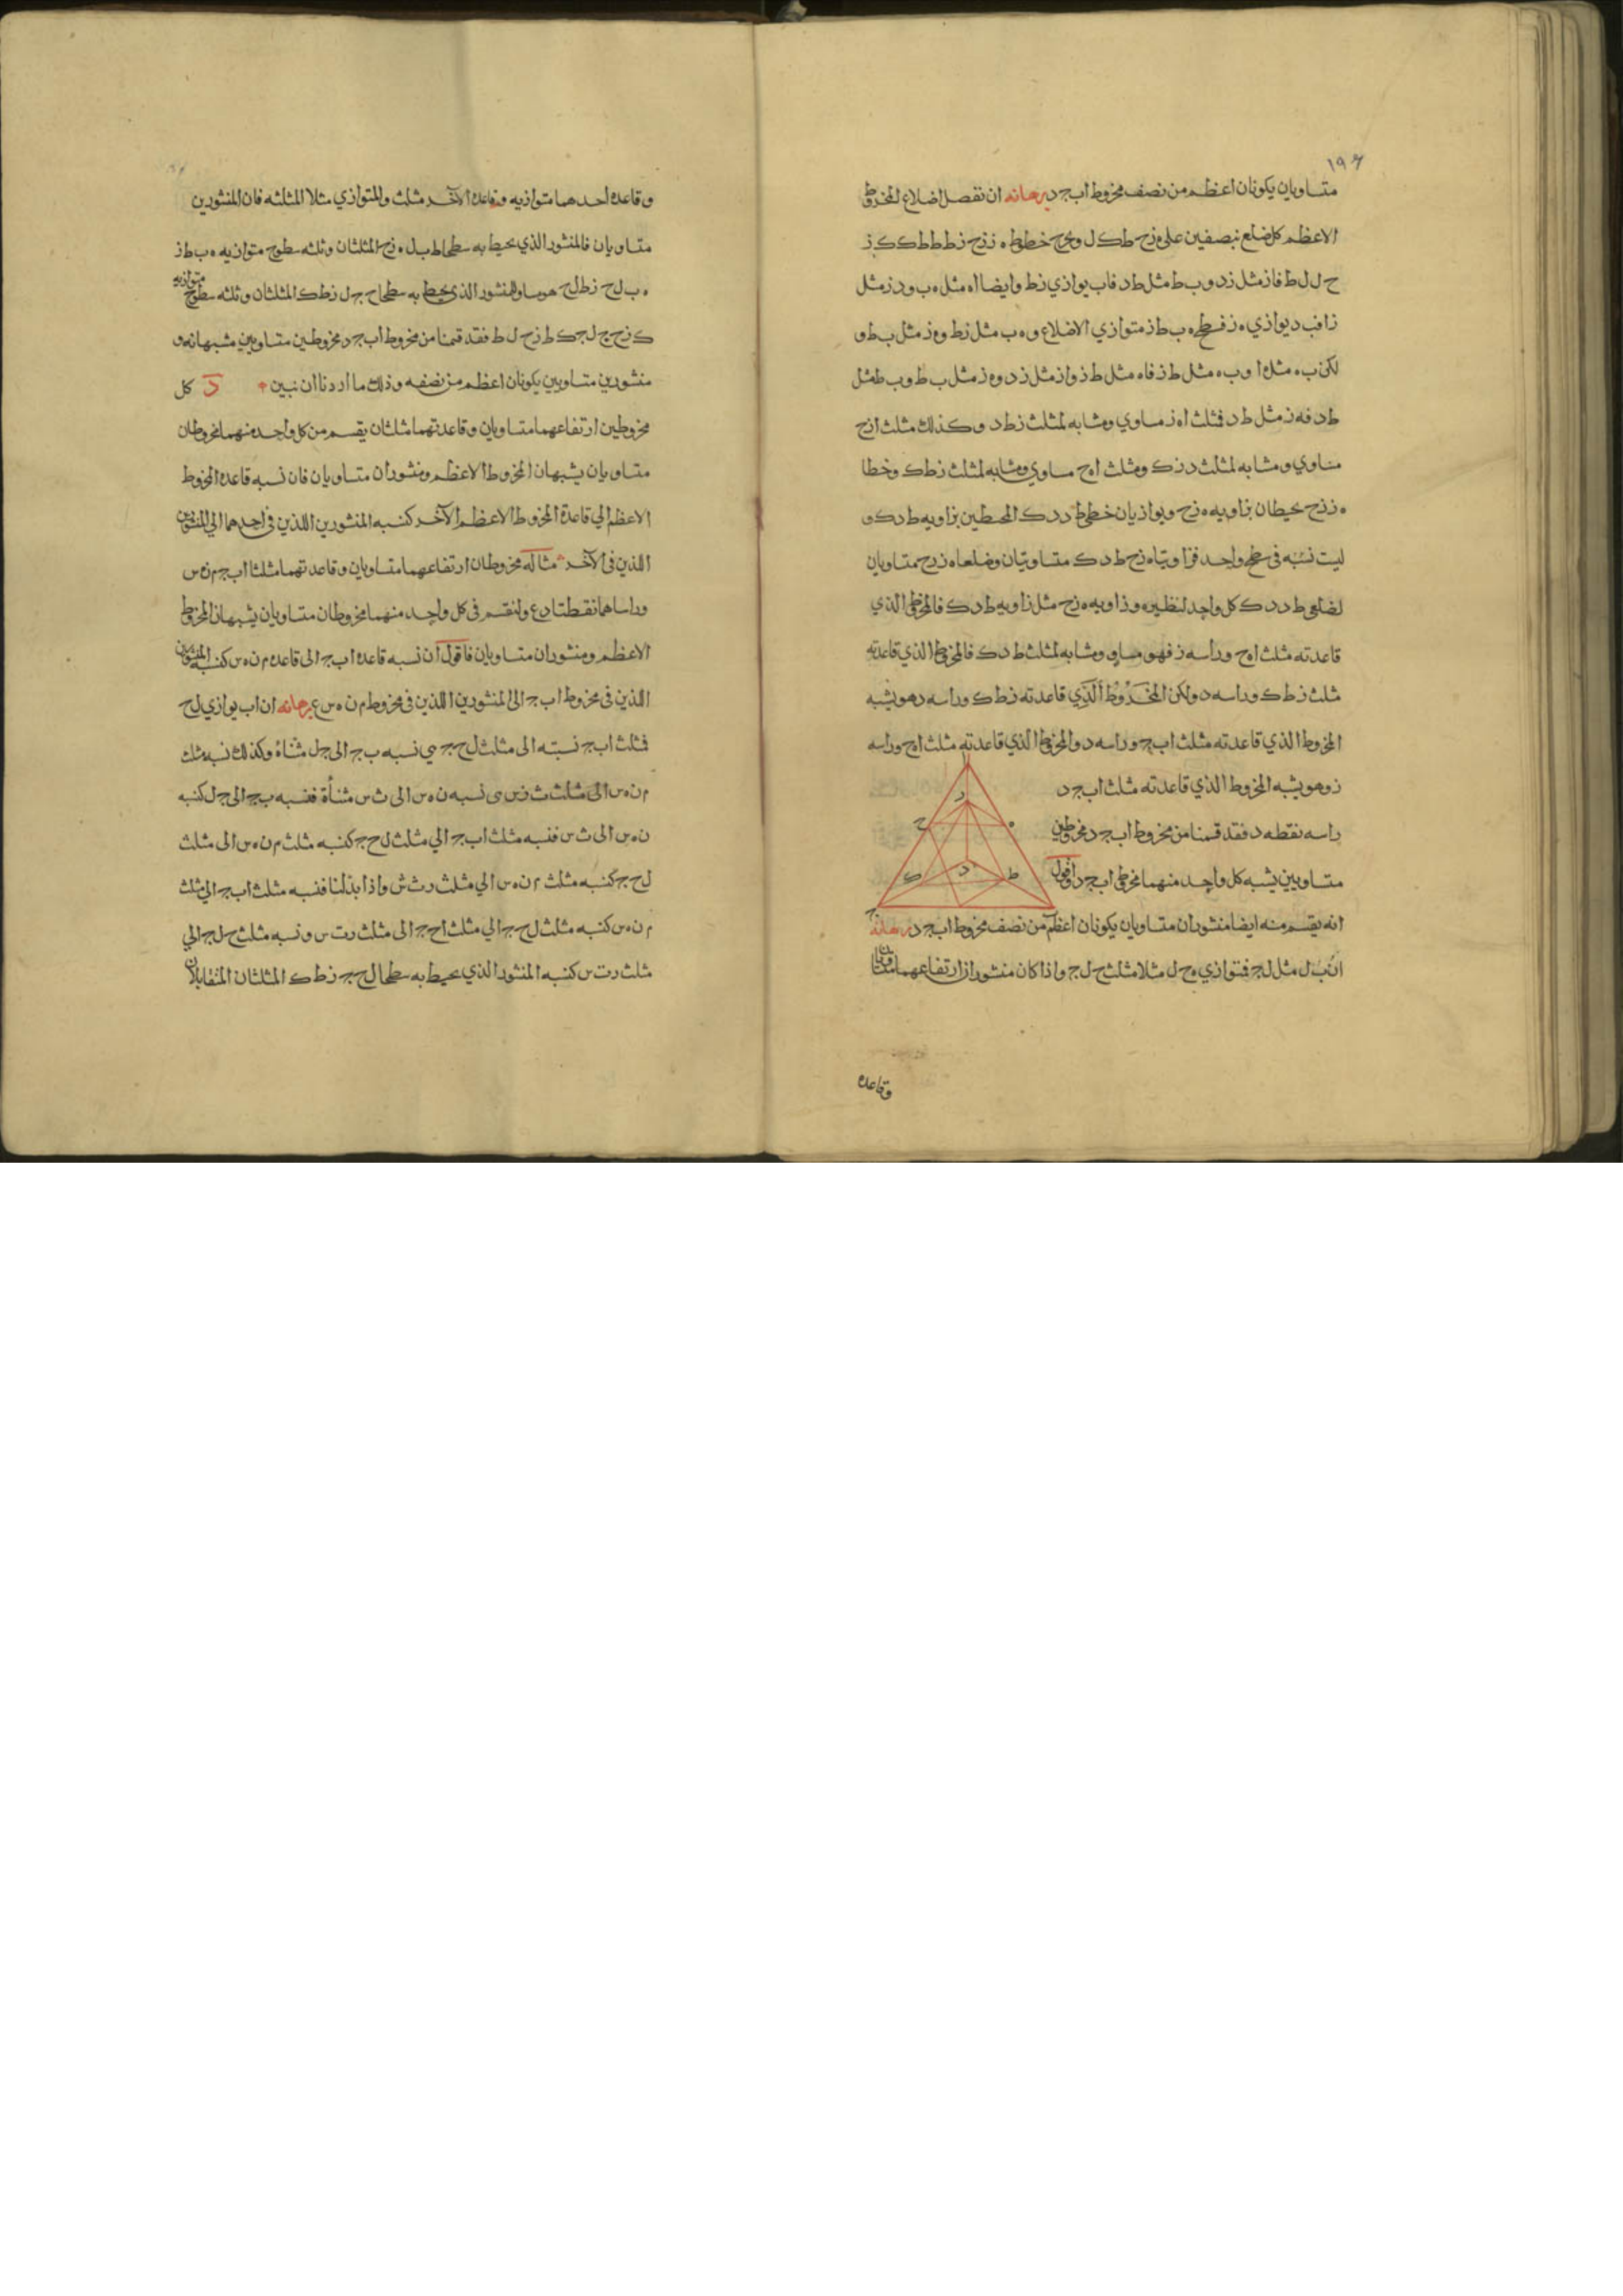 ١٩٤
متساويان يكونان اعظم من نصف مخروط ابجد برهانه ان نفصل اضلاع المخروط
الاعظم كل ضلع بنصفين على ه ز ح ط ك ل ونخرج خطوط ه ز زح زط ط ك ك ز
ح ل ل ط فاز مثل زد و ب ط مثل ط د فاب يوازي زط وايضا اه مثل ه ب ودز مثل
زا فب د يوازي ه ز فسطح ه ب ط ز متوازي الاضلاع و ه ب مثل زط و ه ز مثل ب ط و
لكن ب ه مثل ه ا و ب ه مثل ط ز فاه مثل ط ز واز مثل زد و ه ز مثل ب ط و ب ط مثل
ط د فه ز مثل ط د فمثلث اه ز مساوي ومشابه لمثلث زط د وكذلك مثلث ازح
مساوي ومشابه لمثلث د ز ك ومثلث اه ح مساوي ومشابه لمثلث زط ك وخطا
ه ز زح يحيطان بزاويه ه زح ويوازيان خطي ط د د ك المحيطين بزاويه ط د ك و
ليست نسبه في سطح واحد فزاويتاه زح ط د ك متساويتان وضلعا ه ز زح متساويان
لضلعي ط د د ك كل واحد لنظيره وزاويه ه زح مثل زاويه ط د ك فالمخروط الذي
قاعدته مثلث اه ح وراسه ز فهو مساو ومشابه لمثلث ط د ك فالمخروط الذي قاعدته
مثلث زط ك وراسه د ولكن المخروط الذي قاعدته زط ك وراسه د هو يشبه
المخروط الذي قاعدته مثلث ابج وراسه د والمخروط الذي قاعدته مثلث اه ح وراسه
ز وهو يشبه المخروط الذي قاعدته مثلث ابج د
راسه نقطه د فقد قسمنا من مخروط ابجد مخروطين
متساويين يشبه كل واحد منهما مخروط ابجد واقول
انه يقسم منه ايضا منشوران متساويان يكونان اعظم من نصف مخروط ابجد برهانه
ان ب ل مثل ل ج فمتوازي ه ح ل مثلا مثلث ح ل ج واذا كان منشوران ارتفاعهما متساويان
وقاعده
ز
ح
ه
ك
د
ط
ج
وقاعده احدهما متوازيه وقاعده الآخر مثلث والمتوازي مثلا المثلثه فان المنشورين
متساويان فالمنشور الذي يحيط به سطحا ط ب ل ه زح المثلثان وثلثه سطوح متوازيه ه ب ط ز
ه ب ل ح زط ل ح هو مساو للمنشور الذي يحيط به سطحا ح ج ل زط ك المثلثان وثلثه سطوح متوازيه
ك زح ج ل ج ك ط زح ل ط فقد قسمنا من مخروط ابجد مخروطين متساويين مشبهانه و
منشورين متساويين يكونان اعظم من نصفه وذلك ما اردنا ان نبين د كل
مخروطين ارتفاعهما متساويان وقاعدتهما مثلثان يقسم من كل واحد منهما مخروطان
متساويان يشبهان المخروط الاعظم ومنشوران متساويان فان نسبه قاعده المخروط
الاعظم الي قاعدة المخروط الاعظم الآخر كنسبه المنشورين اللذين في احدهما الي المنشورين
اللذين في الآخر مثاله مخروطان ارتفاعهما متساويان وقاعدتهما مثلثا ابج م ن س
وراساهما نقطتا د ع ولنقسم في كل واحد منهما مخروطان متساويان يشبهان المخروط
الاعظم ومنشوران متساويان فاقول ان نسبه قاعده ابج الى قاعده م ن ه س كنسبه المنشورين
اللذين في مخروط ابج الى المنشورين اللذين في مخروط م ن ه س ع برهانه ان اب يوازي ل ح
فمثلث ابج نسبته الى مثلث ل ح ج هي نسبه ب ج الى ج ل مثناة وكذلك نسبه مثلث
م ن ه س الى مثلث ث ز س هي نسبه ن ه س الى ث س مثناة فنسبه ب ج الى ج ل كنسبه
ن ه س الى ث س فنسبه مثلث ابج الي مثلث ل ح ج كنسبه مثلث م ن ه س الى مثلث
ل ح ج كنسبه مثلث م ن ه س الي مثلث ر ث ش واذا بدلنا فنسبه مثلث ابج الي مثلث
م ن ه س كنسبه مثلث ل ح ج الي مثلث اح ج الى مثلث ر ت س ونسبه مثلث ح ل ج الي
مثلث ر ت س كنسبه المنشور الذي يحيط به سطحا ل ح ج زط ك المثلثان المتقابلان